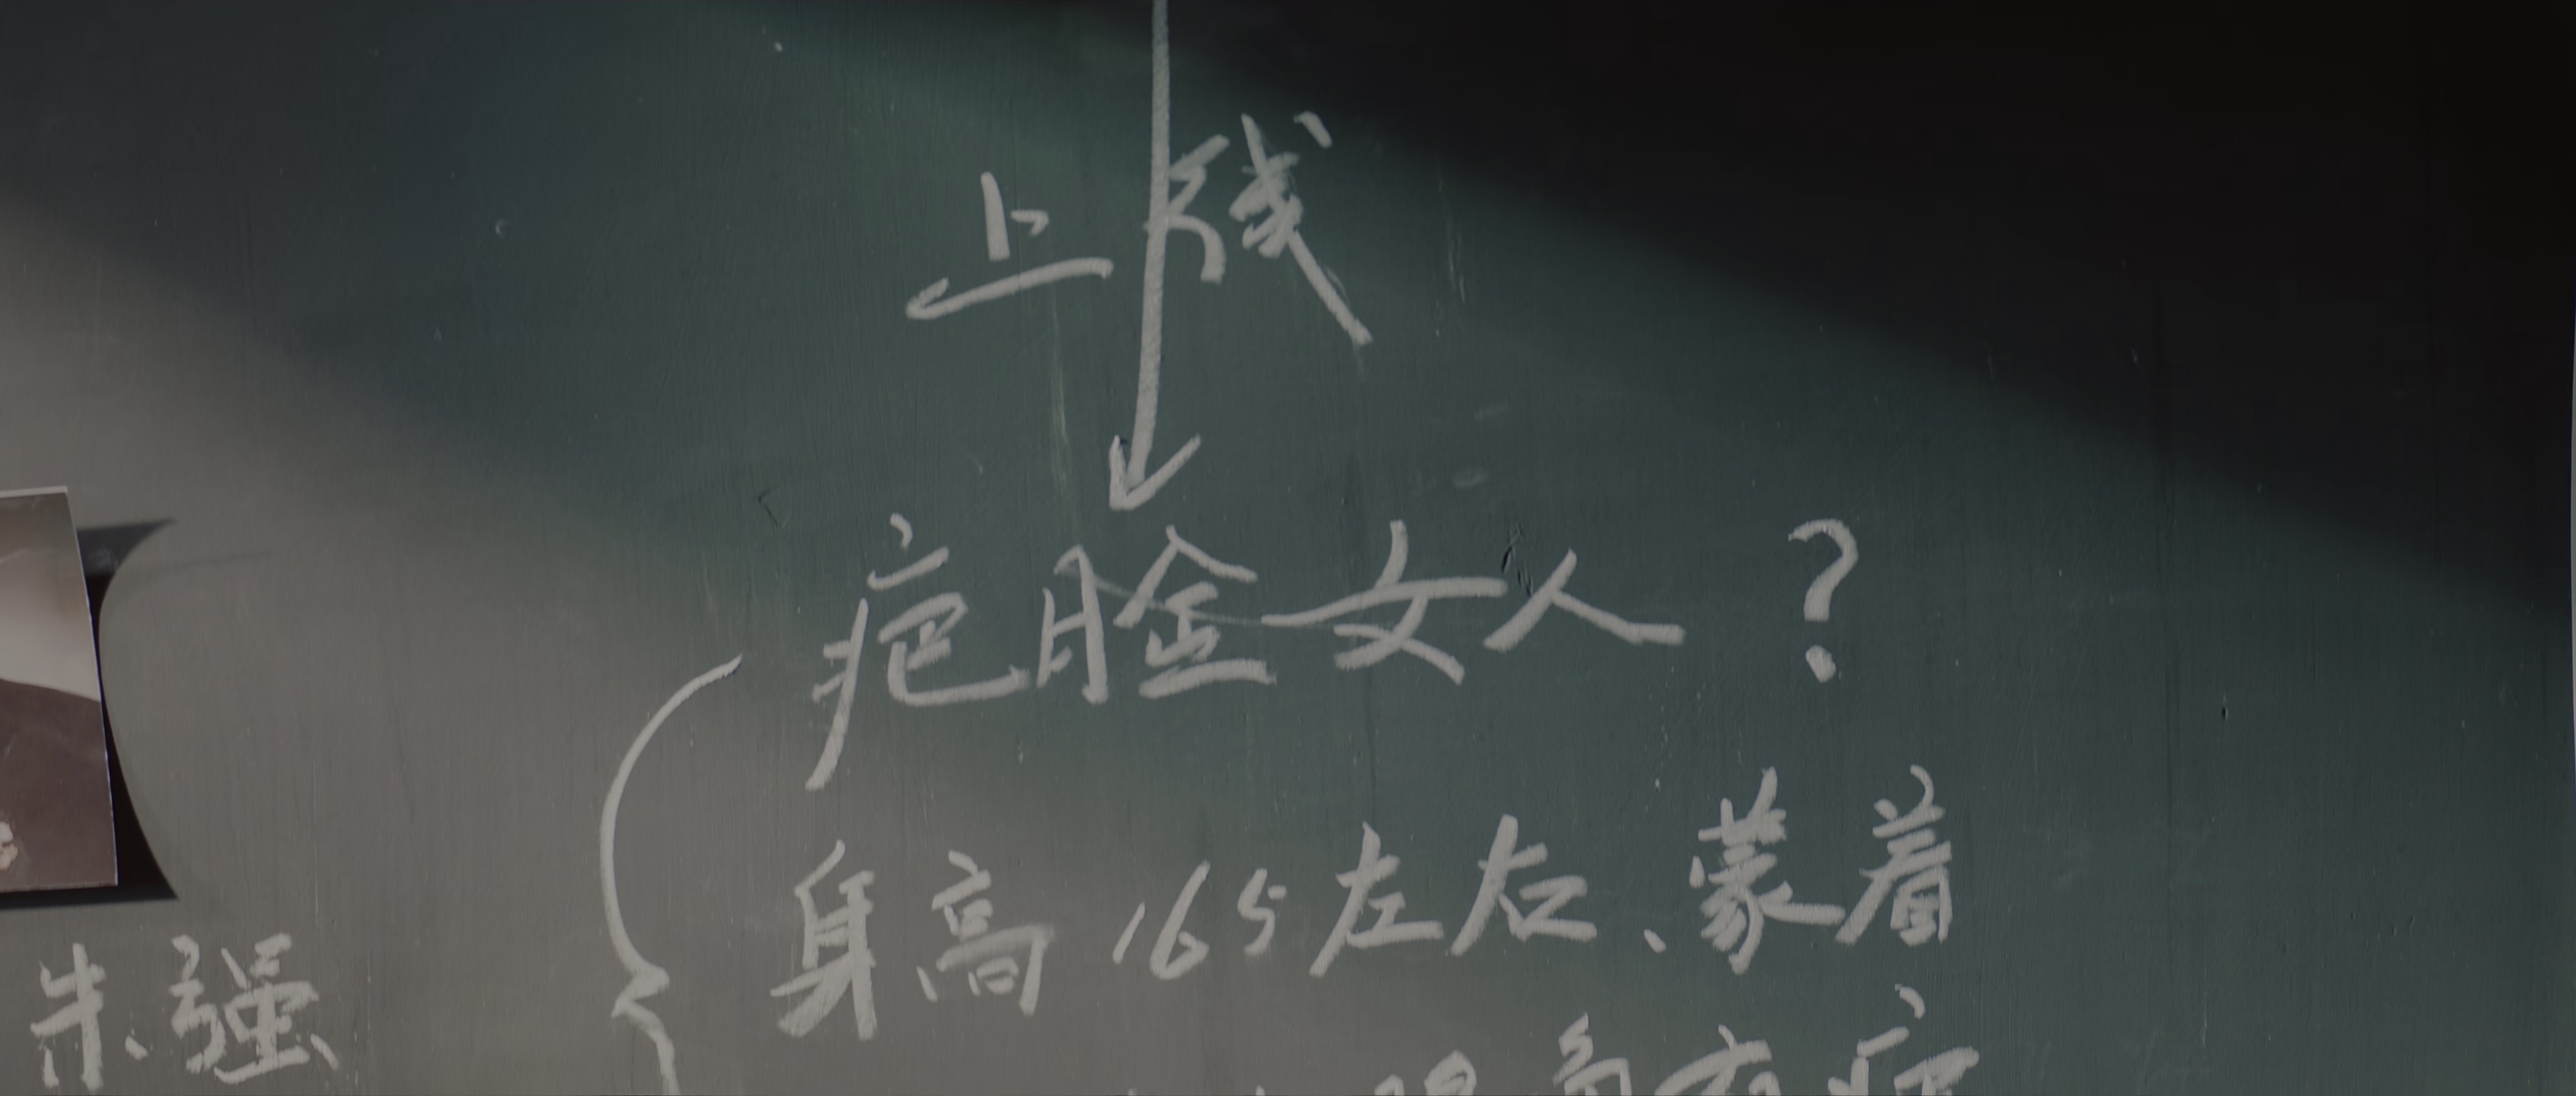 上线
疤脸女人？
身高165左右、蒙着
朱强
眼角有疤